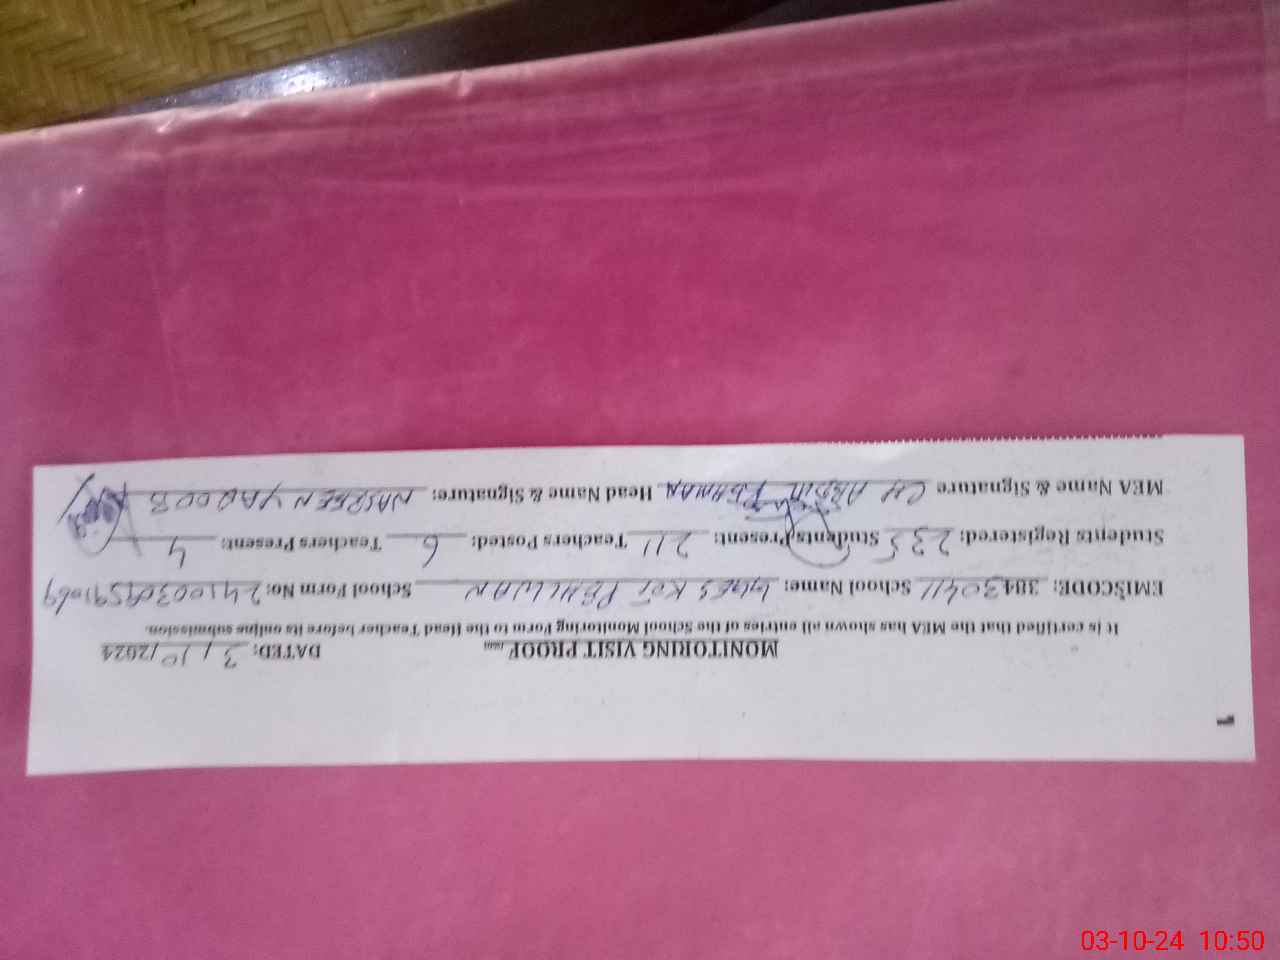 1
MONITORING VISIT PROOF DATED: 3/10/2024
It is certified that the MEA has shown all entries of the School Monitoring Form to the Head Teacher before its online submission.
EMISCODE: 38430411 School Name: KOT PEHLWAN School Form No:
Students Registered: 235 Students Present: 211 Teachers Posted: 6 Teachers Present: 4
MEA Name & Signature CH ABDUL REHMAN Head Name & Signature: NASREEN YAQOOB
03-10-24 10:50